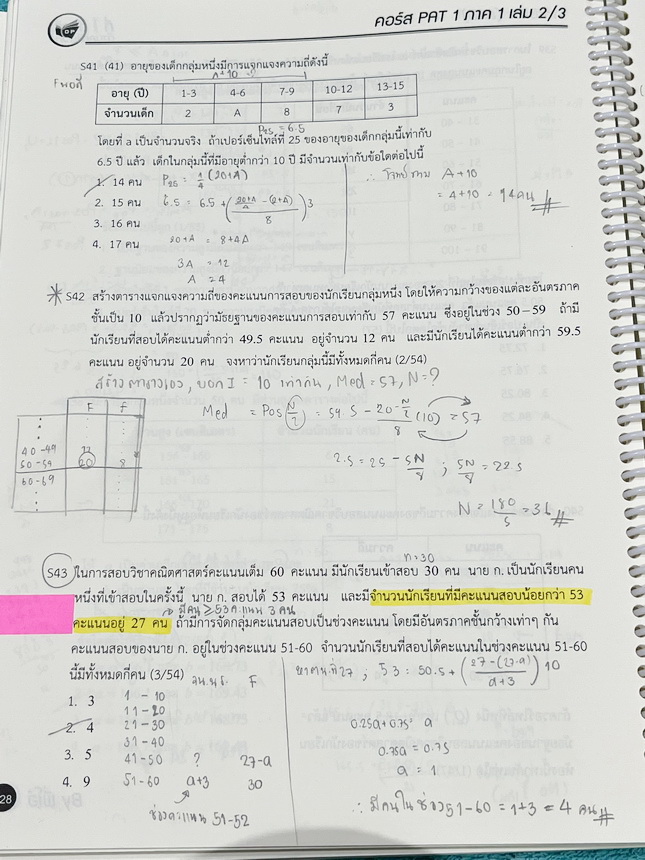 คอร์ส PAT 1 ภาค 1 เล่ม 2/3
S41 (41) อายุของเด็กกลุ่มหนึ่งมีการแจกแจงความถี่ดังนี้
A+10 = ?
อายุ (ปี) 1-3 4-6 7-9 10-12 13-15
จำนวนเด็ก 2 A 8 7 3
P25 = 6.5
โดยที่ a เป็นจำนวนจริง ถ้าเปอร์เซ็นไทล์ที่ 25 ของอายุของเด็กกลุ่มนี้เท่ากับ
6.5 ปี แล้ว เด็กในกลุ่มนี้ที่มีอายุต่ำกว่า 10 ปี มีจำนวนเท่ากับข้อใดต่อไปนี้
1. 14 คน P25 = 1/4 (20+A) ∴ โจทย์ถาม A+10
2. 15 คน 6.5 = 6.5 + ((20+A)/4 - (2+A) / 8) 3 = 4+10 = 14 คน #
3. 16 คน
4. 17 คน 20+A = 8+4A
3A = 12
A = 4
* S42 สร้างตารางแจกแจงความถี่ของคะแนนการสอบของนักเรียนกลุ่มหนึ่ง โดยให้ความกว้างของแต่ละอันตรภาค
ชั้นเป็น 10 แล้วปรากฏว่ามัธยฐานของคะแนนการสอบเท่ากับ 57 คะแนน ซึ่งอยู่ในช่วง 50 – 59 ถ้ามี
นักเรียนที่สอบได้คะแนนต่ำกว่า 49.5 คะแนน อยู่จำนวน 12 คน และมีนักเรียนได้คะแนนต่ำกว่า 59.5
คะแนน อยู่จำนวน 20 คน จงหาว่านักเรียนกลุ่มนี้มีทั้งหมดกี่คน (2/54)
สร้างตารางเอง, บอก I = 10 เท่ากัน, Med = 57, N = ?
F f
Med = Pos N/2 = 59.5 - (20 - N/2)/8 (10) = 57
40-49
50-59 20 8
60-69
2.5 = 25 - 5N/8 ; 5N/8 = 22.5
N = 180/5 = 36 #
n = 30
S43 ในการสอบวิชาคณิตศาสตร์คะแนนเต็ม 60 คะแนน มีนักเรียนเข้าสอบ 30 คน นาย ก. เป็นนักเรียนคน
หนึ่งที่เข้าสอบในครั้งนี้ นาย ก. สอบได้ 53 คะแนน และมีจำนวนนักเรียนที่มีคะแนนสอบน้อยกว่า 53
มีคน ≥ 53 คะแนน 3 คน
คะแนนอยู่ 27 คน ถ้ามีการจัดกลุ่มคะแนนสอบเป็นช่วงคะแนน โดยมีอันตรภาคชั้นกว้างเท่าๆ กัน
คะแนนสอบของนาย ก. อยู่ในช่วงคะแนน 51-60 จำนวนนักเรียนที่สอบได้คะแนนในช่วงคะแนน 51-60
นี้มีทั้งหมดกี่คน (3/54) F หาคนที่ 27 ; 53 = 50.5 + (27 - (27-a) / a+3) 10
1. 3 1 - 10
11 - 20
2. 4 21 - 30 0.25a + 0.75 = a
31 - 40 0.75a = 0.75
3. 5 41 - 50 ? 27-a a = 1
4. 9 51 - 60 a+3 30
∴ มีคนในช่วง 51-60 = 1+3 = 4 คน #
ช่วงคะแนน 51-52
28